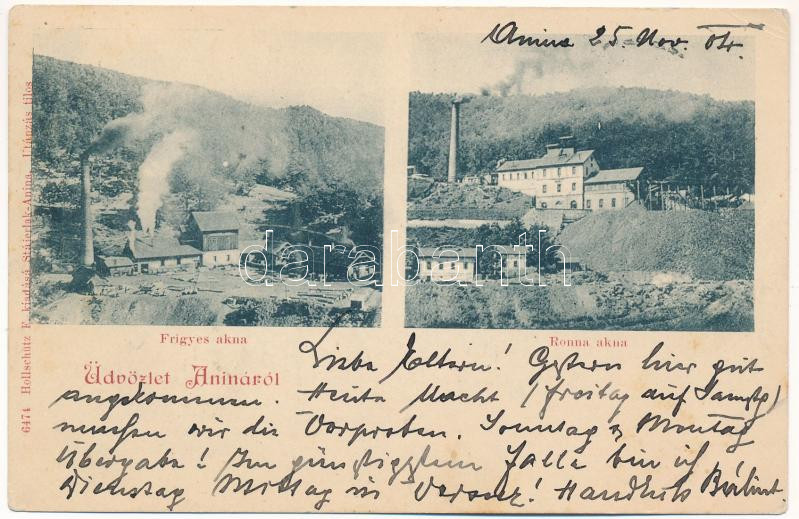 Anina 25. Nov. 04.
6474 Hollschütz F. kiadása Stájerlak-Anina. Utánzás tilos
darabanth
Frigyes akna
Ronna akna
Üdvözlet Anináról
Liebe Eltern! Gestern hier gut
angekommen. Heute Nacht (Freitag auf Samstg)
machen wir die Vorproben. Sonntag & Montag
Übergabe! Im günstigsten Falle bin ich
Dienstag Mittag in Versecz! Handkuß